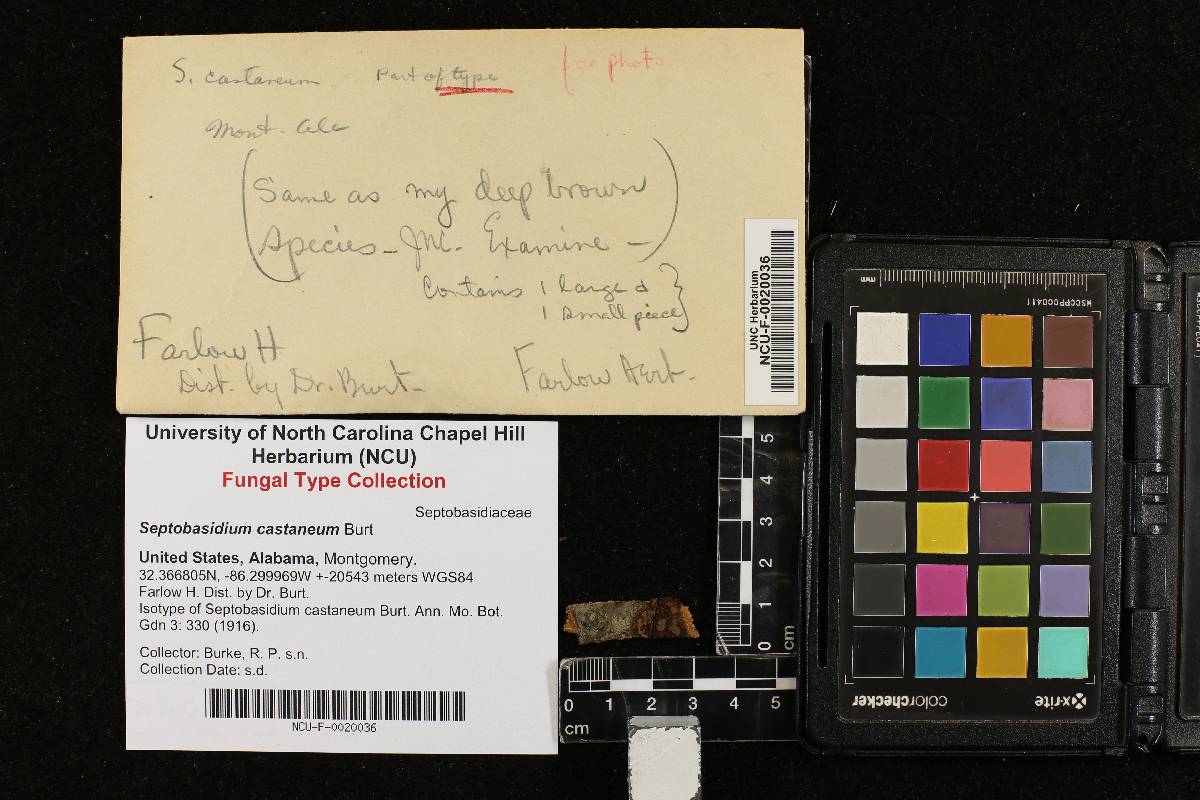 S. castaneum Part of type for photo
Mont. Ala
(Same as my deep brown
species - JNC. Examine -)
Contains 1 large &
1 small piece}
Farlow H
Dist. by Dr. Burt-
Farlow Herb.
UNC Herbarium
NCU-F-0020036
University of North Carolina Chapel Hill
Herbarium (NCU)
Fungal Type Collection
Septobasidiaceae
Septobasidium castaneum Burt
United States, Alabama, Montgomery.
32.366805N, -86.299969W +-20543 meters WGS84
Farlow H. Dist. by Dr. Burt.
Isotype of Septobasidium castaneum Burt. Ann. Mo. Bot.
Gdn 3: 330 (1916).
Collector: Burke, R. P. s.n.
Collection Date: s.d.
NCU-F-0020036
5
4
3
2
1
0
cm
0 1 2 3 4 5
cm
mm
MSCCPPCC0411
colorchecker
x-rite